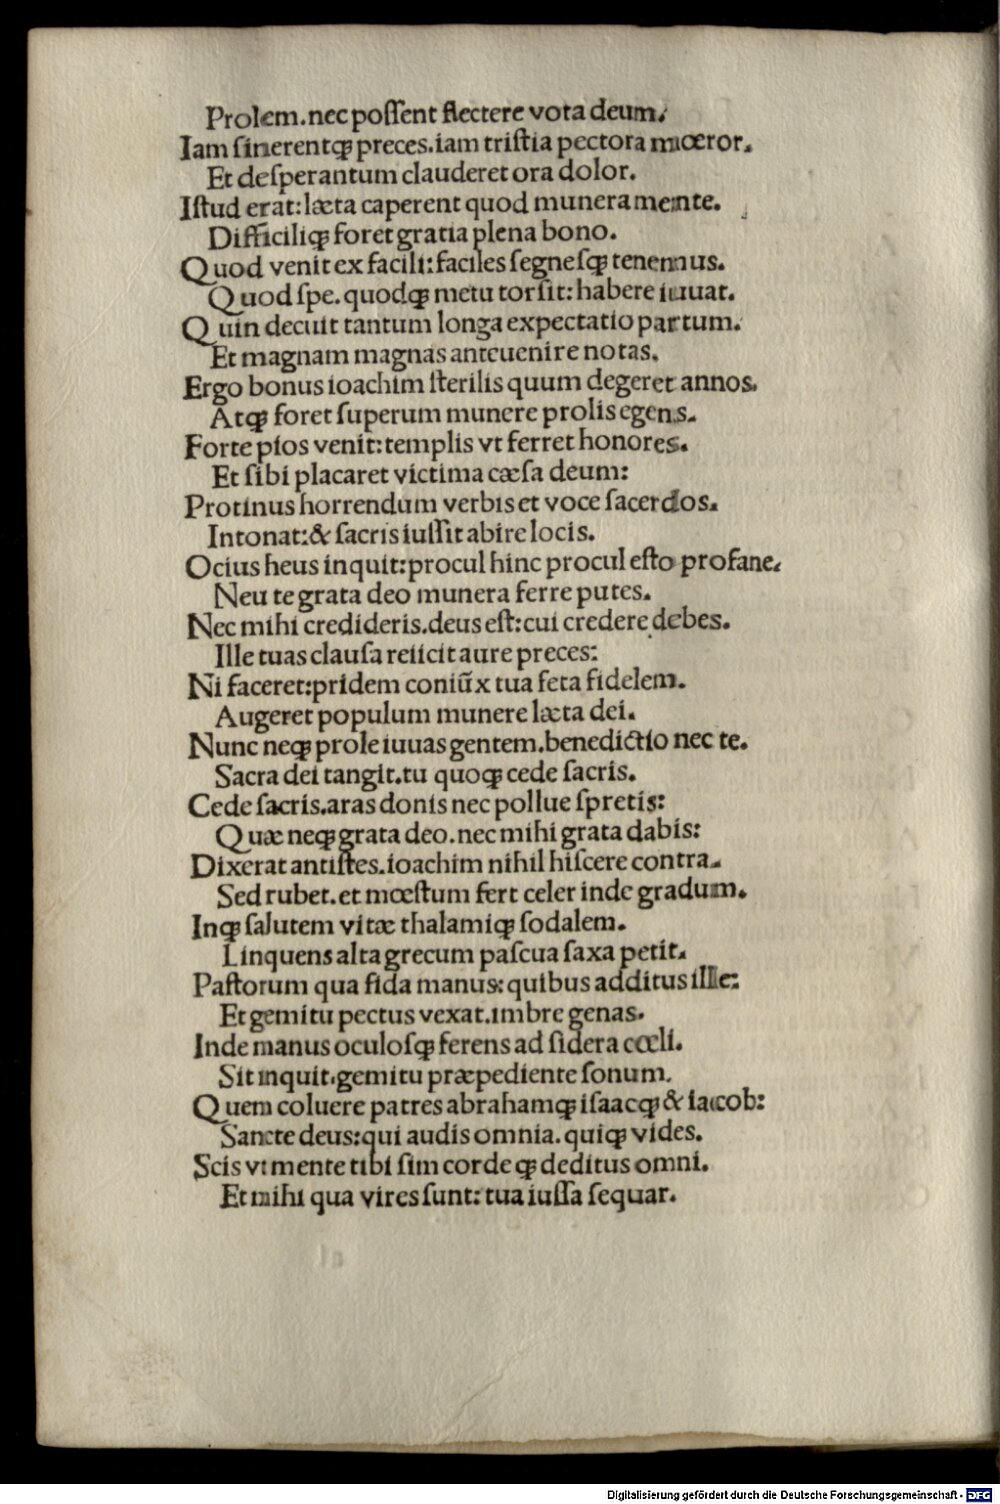 Prolem.nec poſſent flectere vota deum.
Iam ſinerentqꝫ preces.iam triſtia pectora mœror.
Et deſperantum clauderet ora dolor.
Iſtud erat:læta caperent quod munera mente.
Difficiliqꝫ foret gratia plena bono.
Quod venit ex facili:faciles ſegneſqꝫ tenemus.
Quod ſpe.quodqꝫ metu torſit:habere iuuat.
Quin decuit tantum longa expectatio partum.
Et magnam magnas anteuenire notas.
Ergo bonus ioachim ſterilis quum degeret annos.
Atqꝫ foret ſuperum munere prolis egens.
Forte pios venit:templis vt ferret honores.
Et ſibi placaret victima cæſa deum:
Protinus horrendum verbis et voce ſacerdos.
Intonat:& ſacris iuſſit abire locis.
Ocius heus inquit:procul hinc procul eſto profane.
Neu te grata deo munera ferre putes.
Nec mihi credideris.deus eſt:cui credere debes.
Ille tuas clauſa reiicit aure preces:
Ni faceret:pridem coniũx tua feta fidelem.
Augeret populum munere læta dei.
Nunc neqꝫ prole iuuas gentem.benedictio nec te.
Sacra dei tangit.tu quoqꝫ cede ſacris.
Cede ſacris.aras donis nec pollue ſpretis:
Quæ neqꝫ grata deo.nec mihi grata dabis:
Dixerat antiſtes.ioachim nihil hiſcere contra.
Sed rubet.et mœſtum fert celer inde gradum.
Inqꝫ ſalutem vitæ thalamiqꝫ ſodalem.
Linquens alta grecum paſcua ſaxa petit.
Paſtorum qua fida manus:quibus additus ille:
Et gemitu pectus vexat.imbre genas.
Inde manus oculoſqꝫ ferens ad ſidera cœli.
Sit inquit.gemitu præpediente ſonum.
Quem coluere patres abrahamqꝫ iſaacqꝫ & iacob:
Sancte deus:qui audis omnia.quiqꝫ vides.
Scis vt mente tibi ſim corde qꝫ deditus omni.
Et mihi qua vires ſunt:tua iuſſa ſequar.
Digitalisierung gefördert durch die Deutsche Forschungsgemeinschaft - DFG